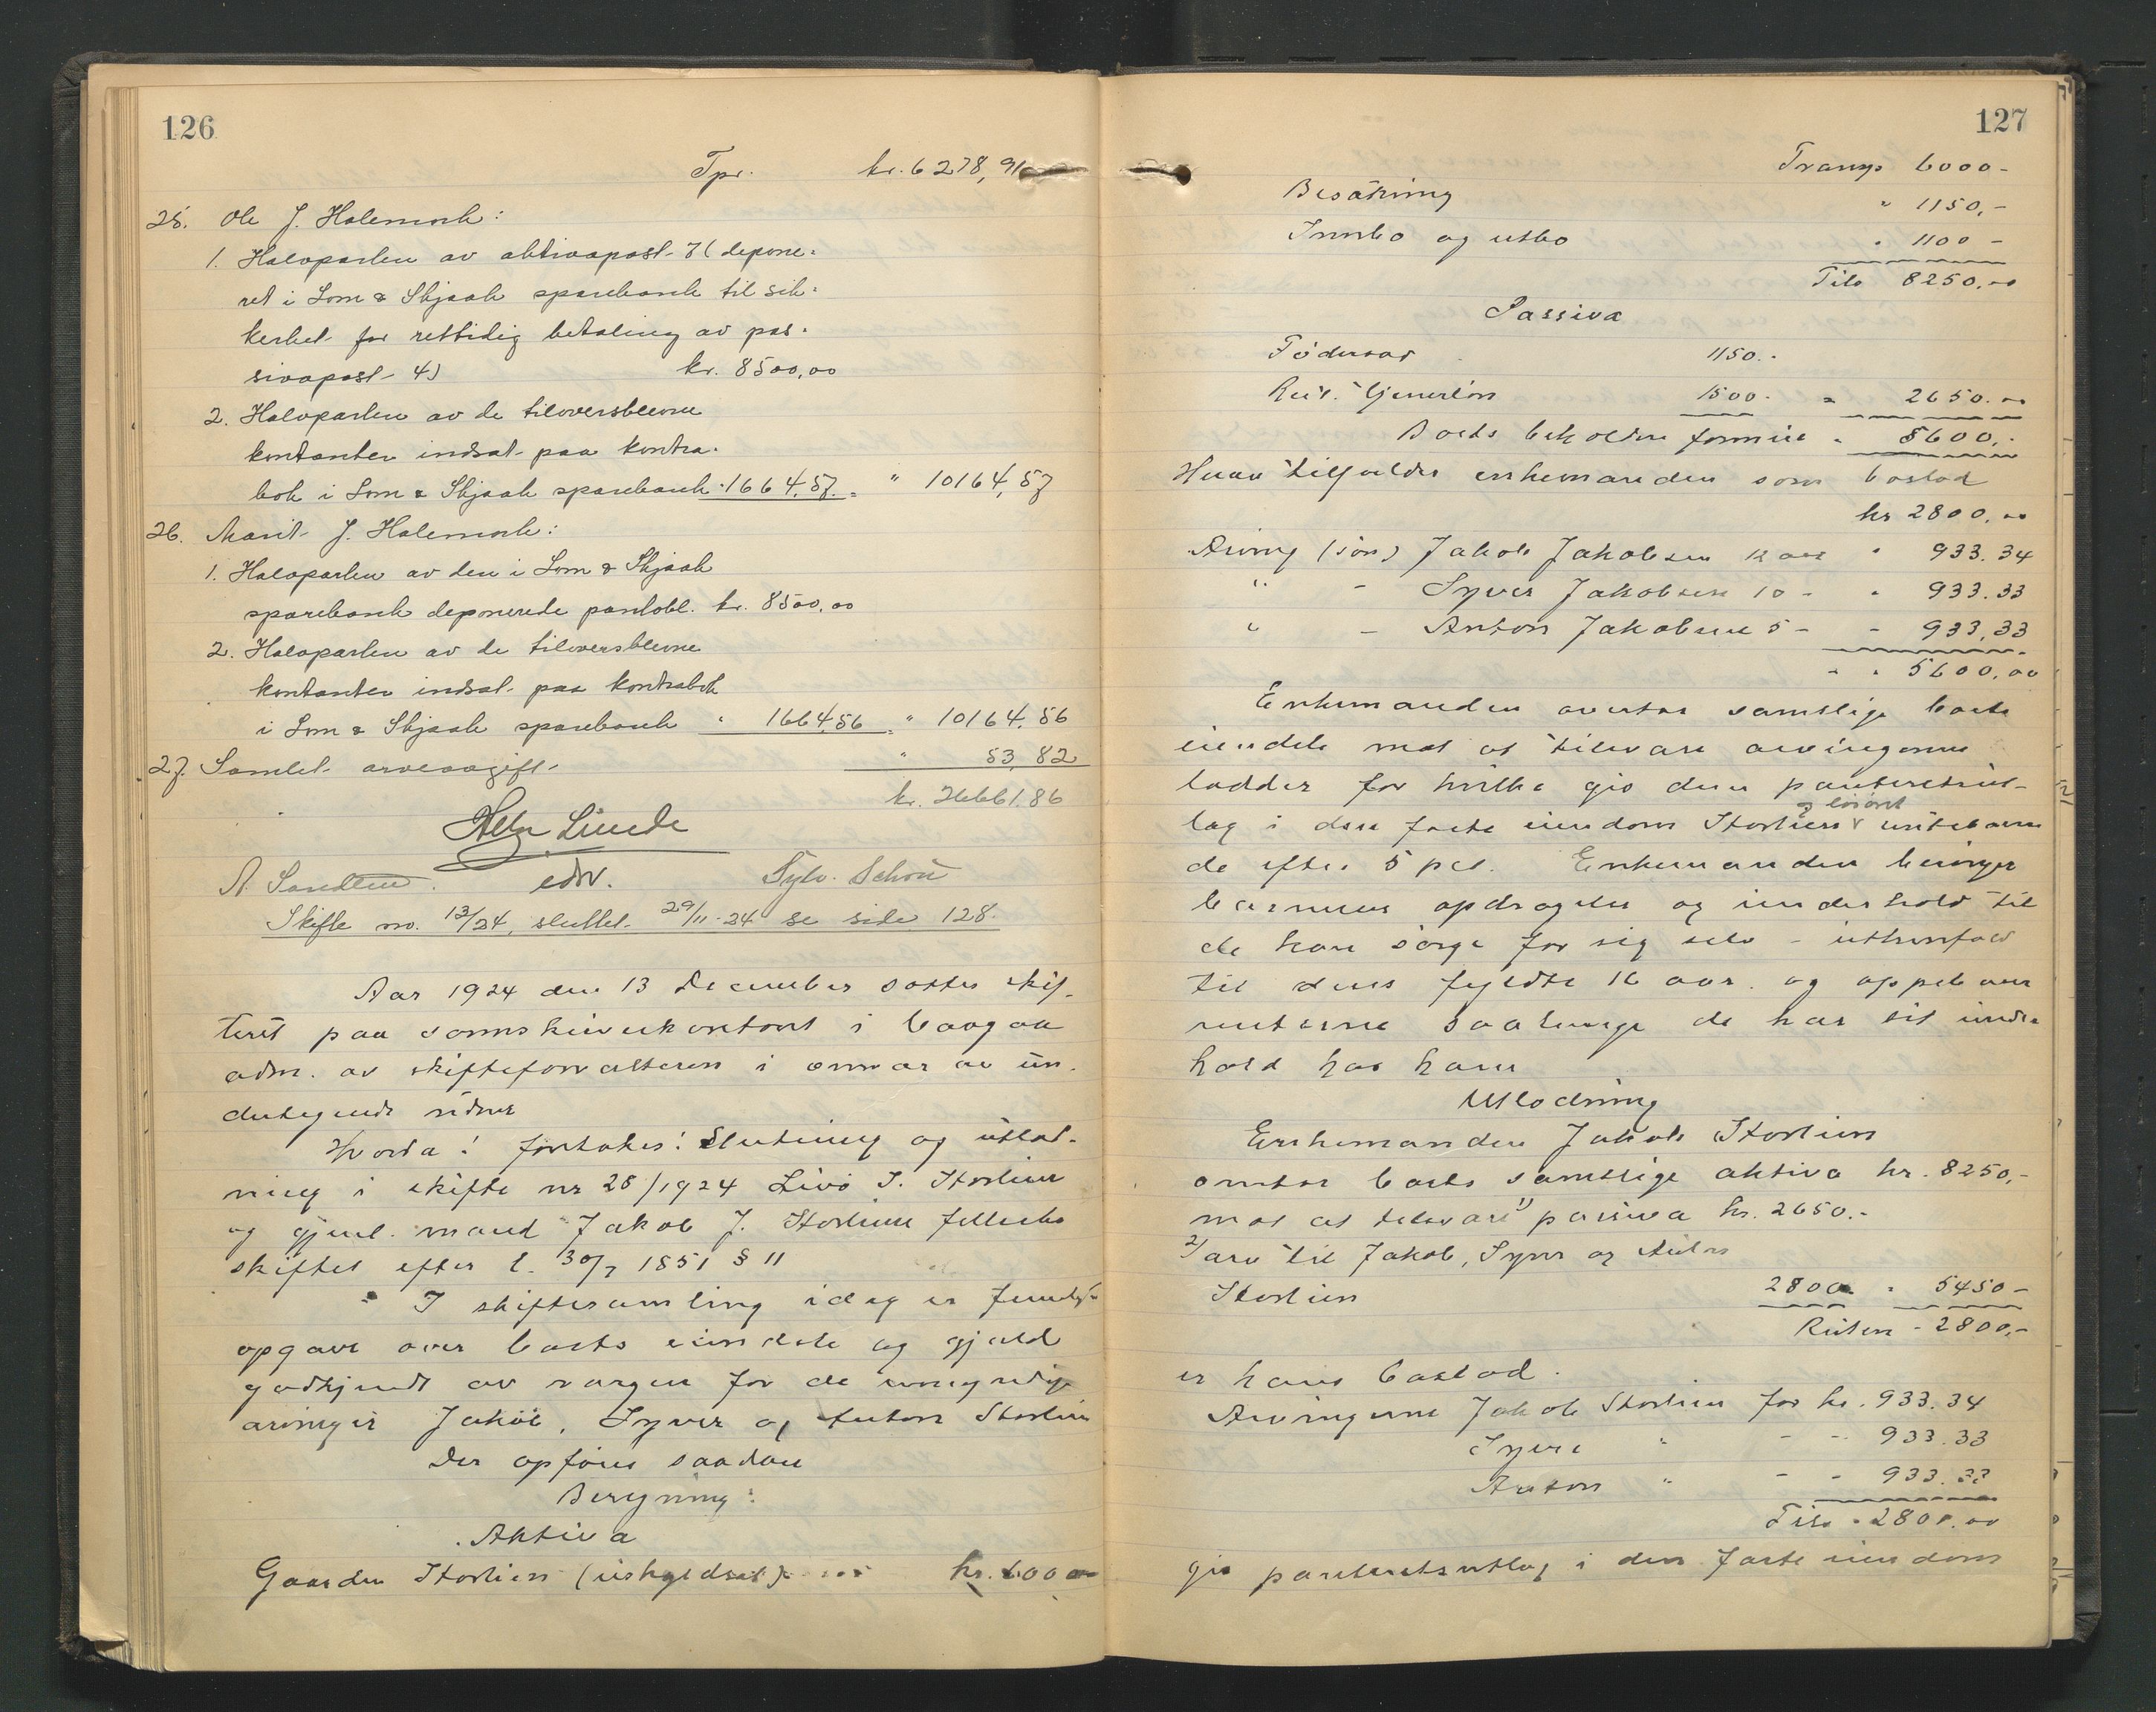 126
Tpr. kr. 6278,91
25. Ole J. Holemork:
1. Halvparten av aktivapost 7 (depone-
ret i Lom & Skjaak sparebank til sik-
kerhet for rettidig betaling av pas-
sivapost 4) kr. 8500,00
2. Halvparten av de tiloversblevne
kontanter indsat paa kontra-
bok i Lom & Skjaak sparebank - 1664,57 = " 10164,57
26. Marit J. Holemork:
1. Halvparten av den i Lom & Skjaak
sparebank deponerede pantobl. kr. 8500,00
2. Halvparten av de tiloversblevne
kontanter indsat paa kontrabok
i Lom & Skjaak sparebank " 1664,56 = " 10164,56
27. Samlet arveavgift " 53,82
kr. 26661.86
Linde
A. Sandlien. edsv. Sylv. Schou
Skifte no. 13/24, sluttet 29/11-24 se side 128.
Aar 1924 den 13 December sattes skif-
teret paa sorenskriverkontoret i Vaagaa
adm. av skifteforvalteren i nærvær av un-
dertegnede vidner
Hvorda! foretokes: Slutning og utlod-
ning i skifte nr 28/1924 Livø J. Storlien
og gjenl. mand Jakob J. Storlien fællesbo
skiftet efter l. 30/7 1851 § 11
I skiftesamling idag er fremlagt
opgave over boets eiendele og gjæld
godkjendt av vergen for de umyndige
arvinger Jakob, Syver og Anton Storlien
Der opføres saadan
Beregning:
Aktiva
Gaarden Storlien (uskyldsat) kr. 6000
127
Transp 6000-
Besætning " 1150,-
Innbo og utbo " 1100 -
Tils 8250,00
Passiva
Föderaad 1150.-
Rest. Gjenlön 1500.- = 2650.00
Boets beholdne formue " 5600,-
Herav tilfalder enkemanden som boslod
kr 2800,00
Arving (sön) Jakob Jakobsen 12 aar " 933.34
" - Syver Jakobsen 10 - " 933.33
" - Anton Jakobsen 5 - - 933,33
- " 5600,00
Enkemanden overtar samtlige boets
eiendele mot at tilsvare arvingenes
lodder for hvilke gis dem panteretsut-
og lösöret
lag i den faste eiendom Storlien v rentebæren-
de efter 5 pct. Enkemanden besörger
barnenes opdragelse og underhold til
de kan sörge for sig selv - ithvertfald
til deres fyldte 16 aar. og oppebærer
renterne saalenge de har sit under
hold hos ham
Utlodning
Enkemanden Jakob Storlien
overtar boets samtlige aktiva kr. 8250,-
mot at tilsvare 1) passiva kr. 2650.-
2/ arv til Jakob, Syver og Anton
Storlien 2800. " 5450-
Resten - 2800,-
er hans boslod.
Arvingerne Jakob Storlien for kr. 933.34
Syver " - - 933.33
Anton " - - 933.33
Tils - 2800.00
gis panteretsutlæg i den faste eiendom